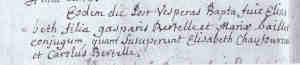 Eodem die post vesperas Bapta. fuit Elisa
beth filia gasparis Bertelle et Mariæ baillet
conjugum quam susceperunt Elisabeth
et Carolus Bertelle.